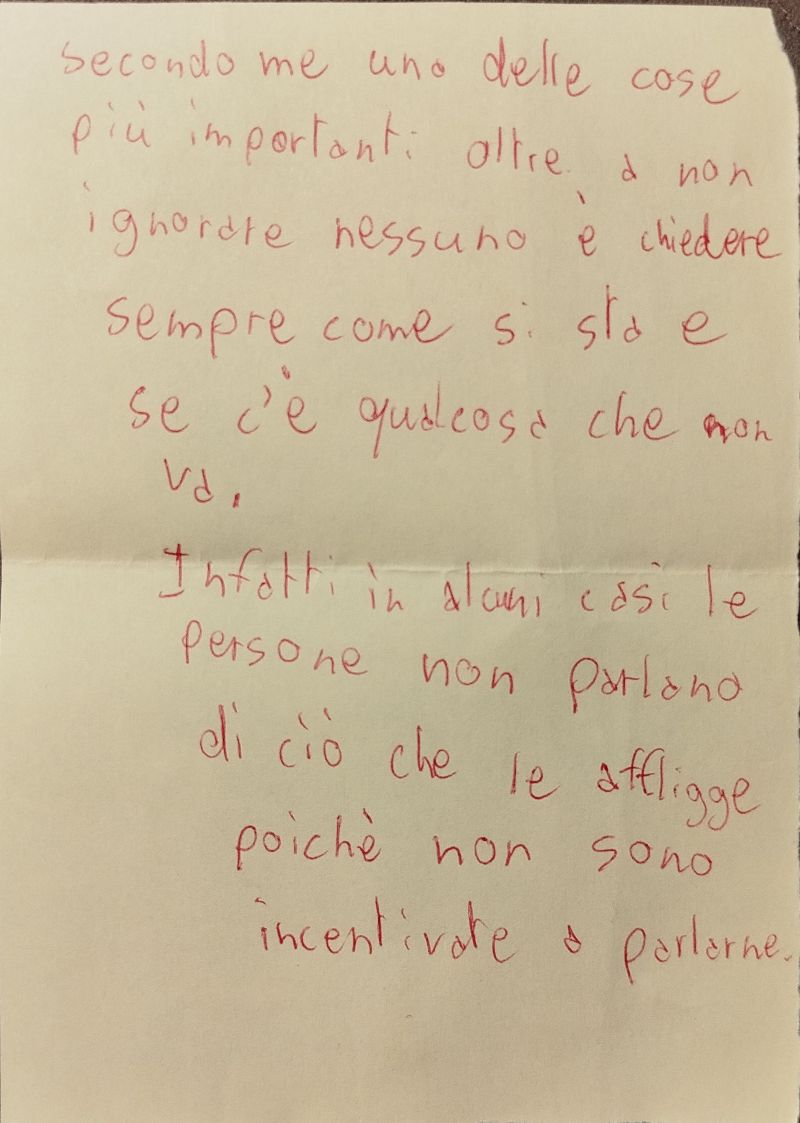 secondo me una delle cose
più importanti oltre a non
ignorare nessuno è chiedere
sempre come si sta e
se c'è qualcosa che non
va.
Infatti in alcuni casi le
persone non parlano
di ciò che le affligge
poichè non sono
incentivate a parlarne.